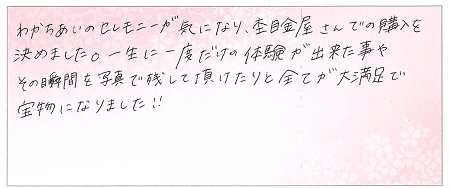 わかちあいのセレモニーが気になり、杢目金屋さんでの購入を
決めました。一生に一度だけの体験が出来た事や
その瞬間を写真で残して頂けたりと全てが大満足で
宝物になりました!!